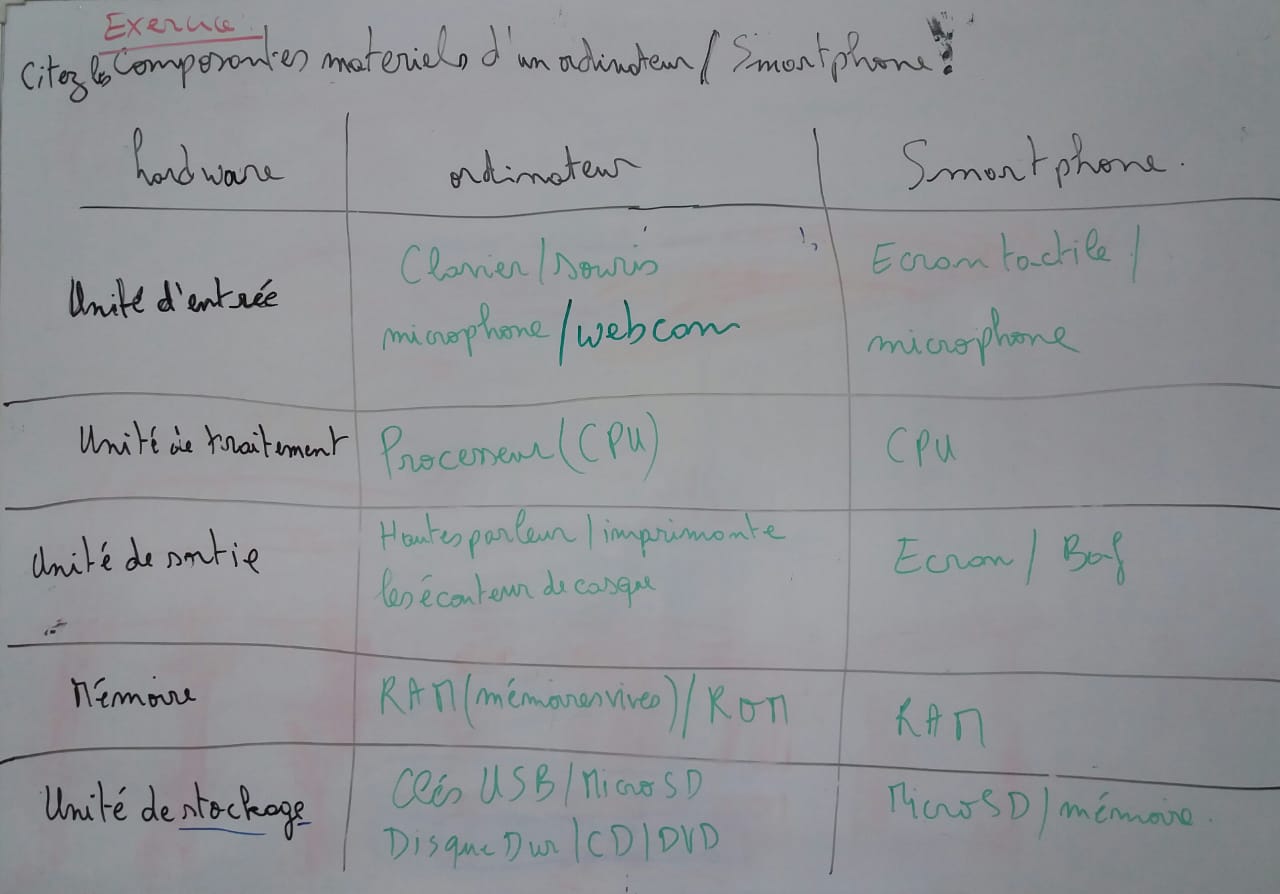 Exercice :
Citez les Composantes materiels d'un ordinateur / Smartphone ?
hardware ordinateur Smartphone.
Unité d'entrée
Clavier / souris
microphone / webcam
Ecran tactile /
microphone
Unité de traitement Processeur (CPU) CPU
Unité de sortie
Hautes parleur / imprimante
les écouteur de casque
Ecran / Baf
Mémoire RAM (mémoires vives) / ROM RAM
Unité de stockage
Clés USB / Micro SD
Disque Dur / CD / DVD
Micro SD / mémoire.